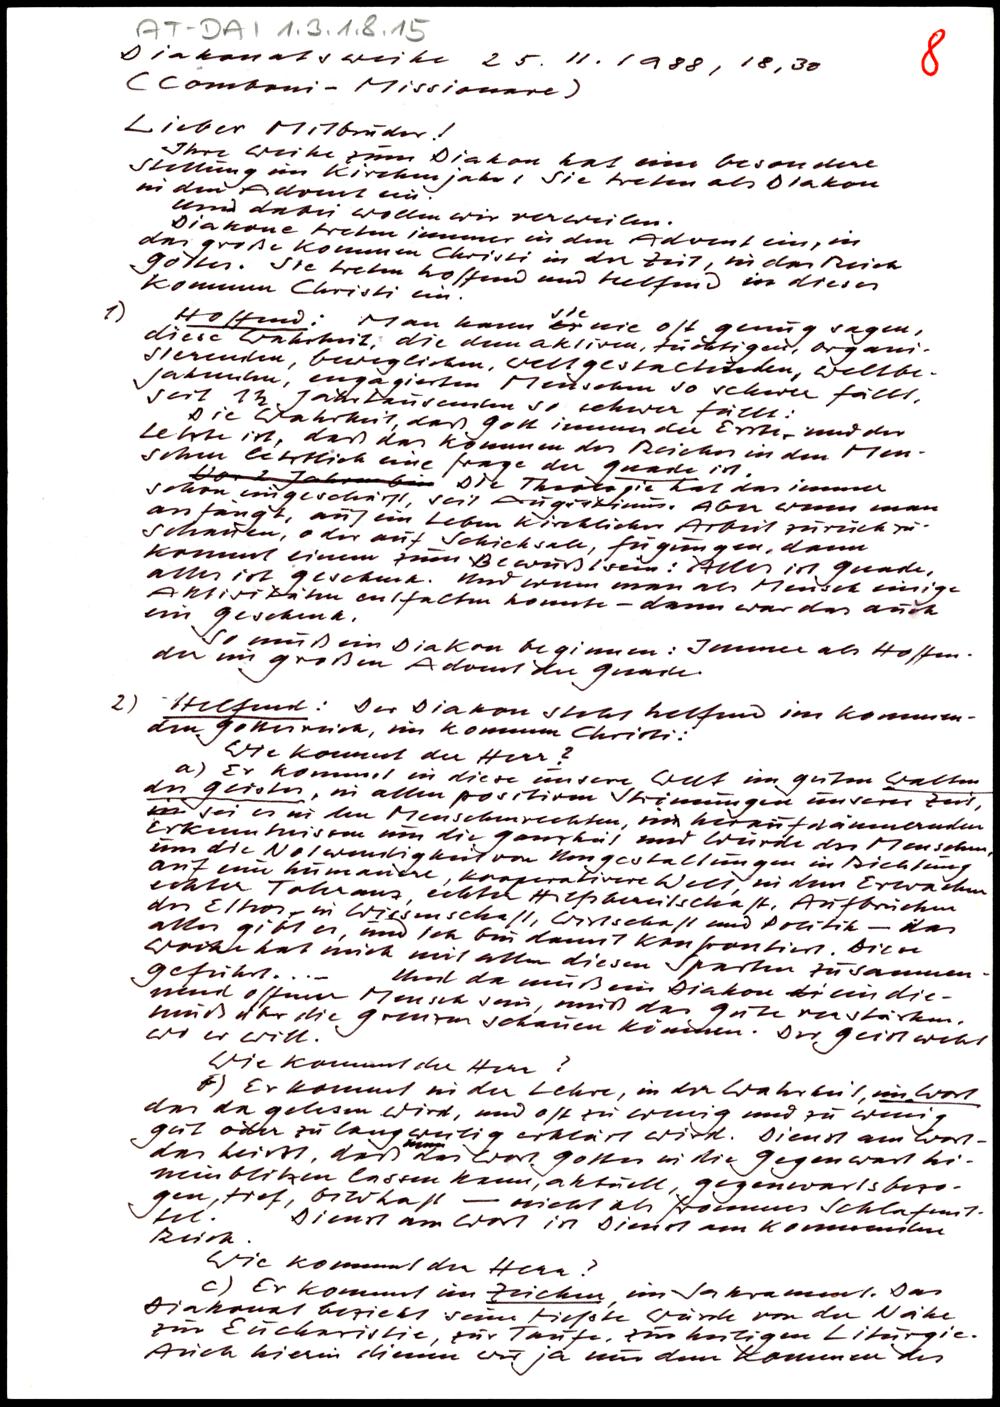 AT-DAI 1.3.1.8.15
8
Diakonatsweihe 25. 11. 1988, 18,30
(Comboni-Missionare)
Lieber Mitbruder!
Ihre Weihe zum Diakon hat eine besondere
Stellung im Kirchenjahr: Sie treten als Diakon
in den Advent ein.
Und dabei wollen wir verweilen.
Diakone treten immer in den Advent ein, in
das große Kommen Christi in der Zeit, in das Reich
Gottes. Sie treten hoffend und helfend in dieses
Kommen Christi ein.
1) Hoffend: Man kann sie nie oft genug sagen,
diese Wahrheit, die dem aktiven, tüchtigen, organi-
sierenden, beweglichen, weltgestaltenden, weltbe-
jahenden, engagierten Menschen so schwer fällt,
seit 1½ Jahrtausenden so schwer fällt:
Die Wahrheit, daß Gott immer der Erste und der
Letzte ist, daß das Kommen des Reiches in den Men-
schen letztlich eine Frage der Gnade ist.
Vor 2 Jahren bin Die Theologie hat das immer
schon eingeschärft, seit Augustinus. Aber wenn man
anfängt, auf ein Leben kirchlicher Arbeit zurückzu-
schauen, oder auf Schicksale, Fügungen, dann
kommt einem zum Bewußtsein: Alles ist Gnade,
alles ist Geschenk. Und wenn man als Mensch einige
Aktivitäten entfalten konnte – dann war das auch
ein Geschenk.
So muß ein Diakon beginnen: Immer als Hoffen-
der im großen Advent der Gnade.
2) Helfend: Der Diakon steht helfend im kommen-
den Gottesreich, im Kommen Christi:
Wie kommt der Herr?
a) Er kommt in diese unsere Welt im guten Walten
des Geistes, in allen positiven Strömungen unserer Zeit,
sei es in den Menschenrechten, im heraufdämmernden
Erkenntnissen um die Ganzheit und Würde des Menschen,
um die Notwendigkeit von Umgestaltungen in Richtung
auf eine humanere, kooperativere Welt, in dem Erwachen
echter Toleranz, echter Hilfsbereitschaft, Aufbrüchen
des Ethos in Wissenschaft, Wirtschaft und Politik – das
alles gibt es, und ich bin damit konfrontiert. Diese
Woche hat mich mit allen diesen Sparten zusammen-
geführt... – Und da muß ein Diakon ein die-
nend offener Mensch sein, muß das Gute verstärken,
muß über die Grenzen schauen können. Der Geist weht
wo er will.
Wie kommt der Herr?
b) Er kommt in der Lehre, in der Wahrheit, im Wort
das da gelesen wird, und oft zu wenig und zu wenig
gut oder zu langweilig erklärt wird. Dienst am Wort –
das heißt, daß das Wort Gottes in die Gegenwart hi-
neinblitzen lassen kann, aktuell, gegenwartsbezo-
gen, tief, bildhaft – nicht als frommes Schlafmit-
tel. Dienst am Wort ist Dienst am kommenden
Reich.
Wie kommt der Herr?
c) Er kommt im Zeichen, im Sakrament. Das
Diakonat bezieht seine tiefste Würde von der Nähe
zur Eucharistie, zur Taufe, zur heiligen Liturgie.
Auch hierin dienen wir ja nur dem Kommen des